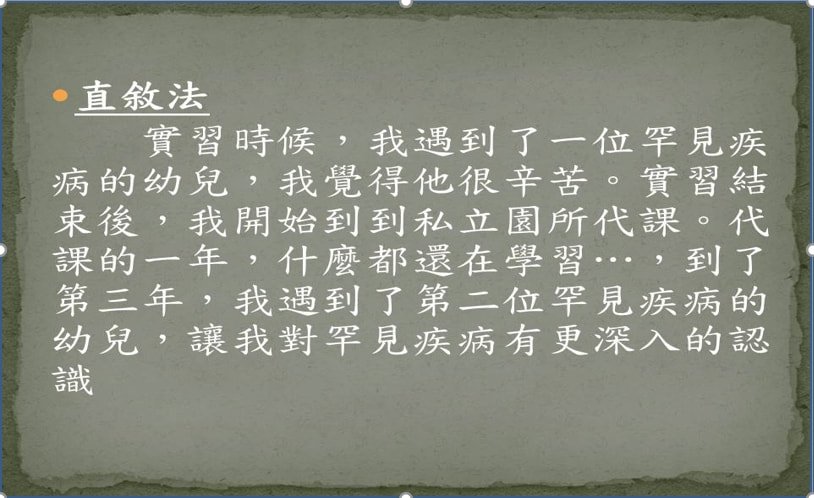 • 直敘法
實習時候，我遇到了一位罕見疾
病的幼兒，我覺得他很辛苦。實習結
束後，我開始到到私立園所代課。代
課的一年，什麼都還在學習…，到了
第三年，我遇到了第二位罕見疾病的
幼兒，讓我對罕見疾病有更深入的認
識